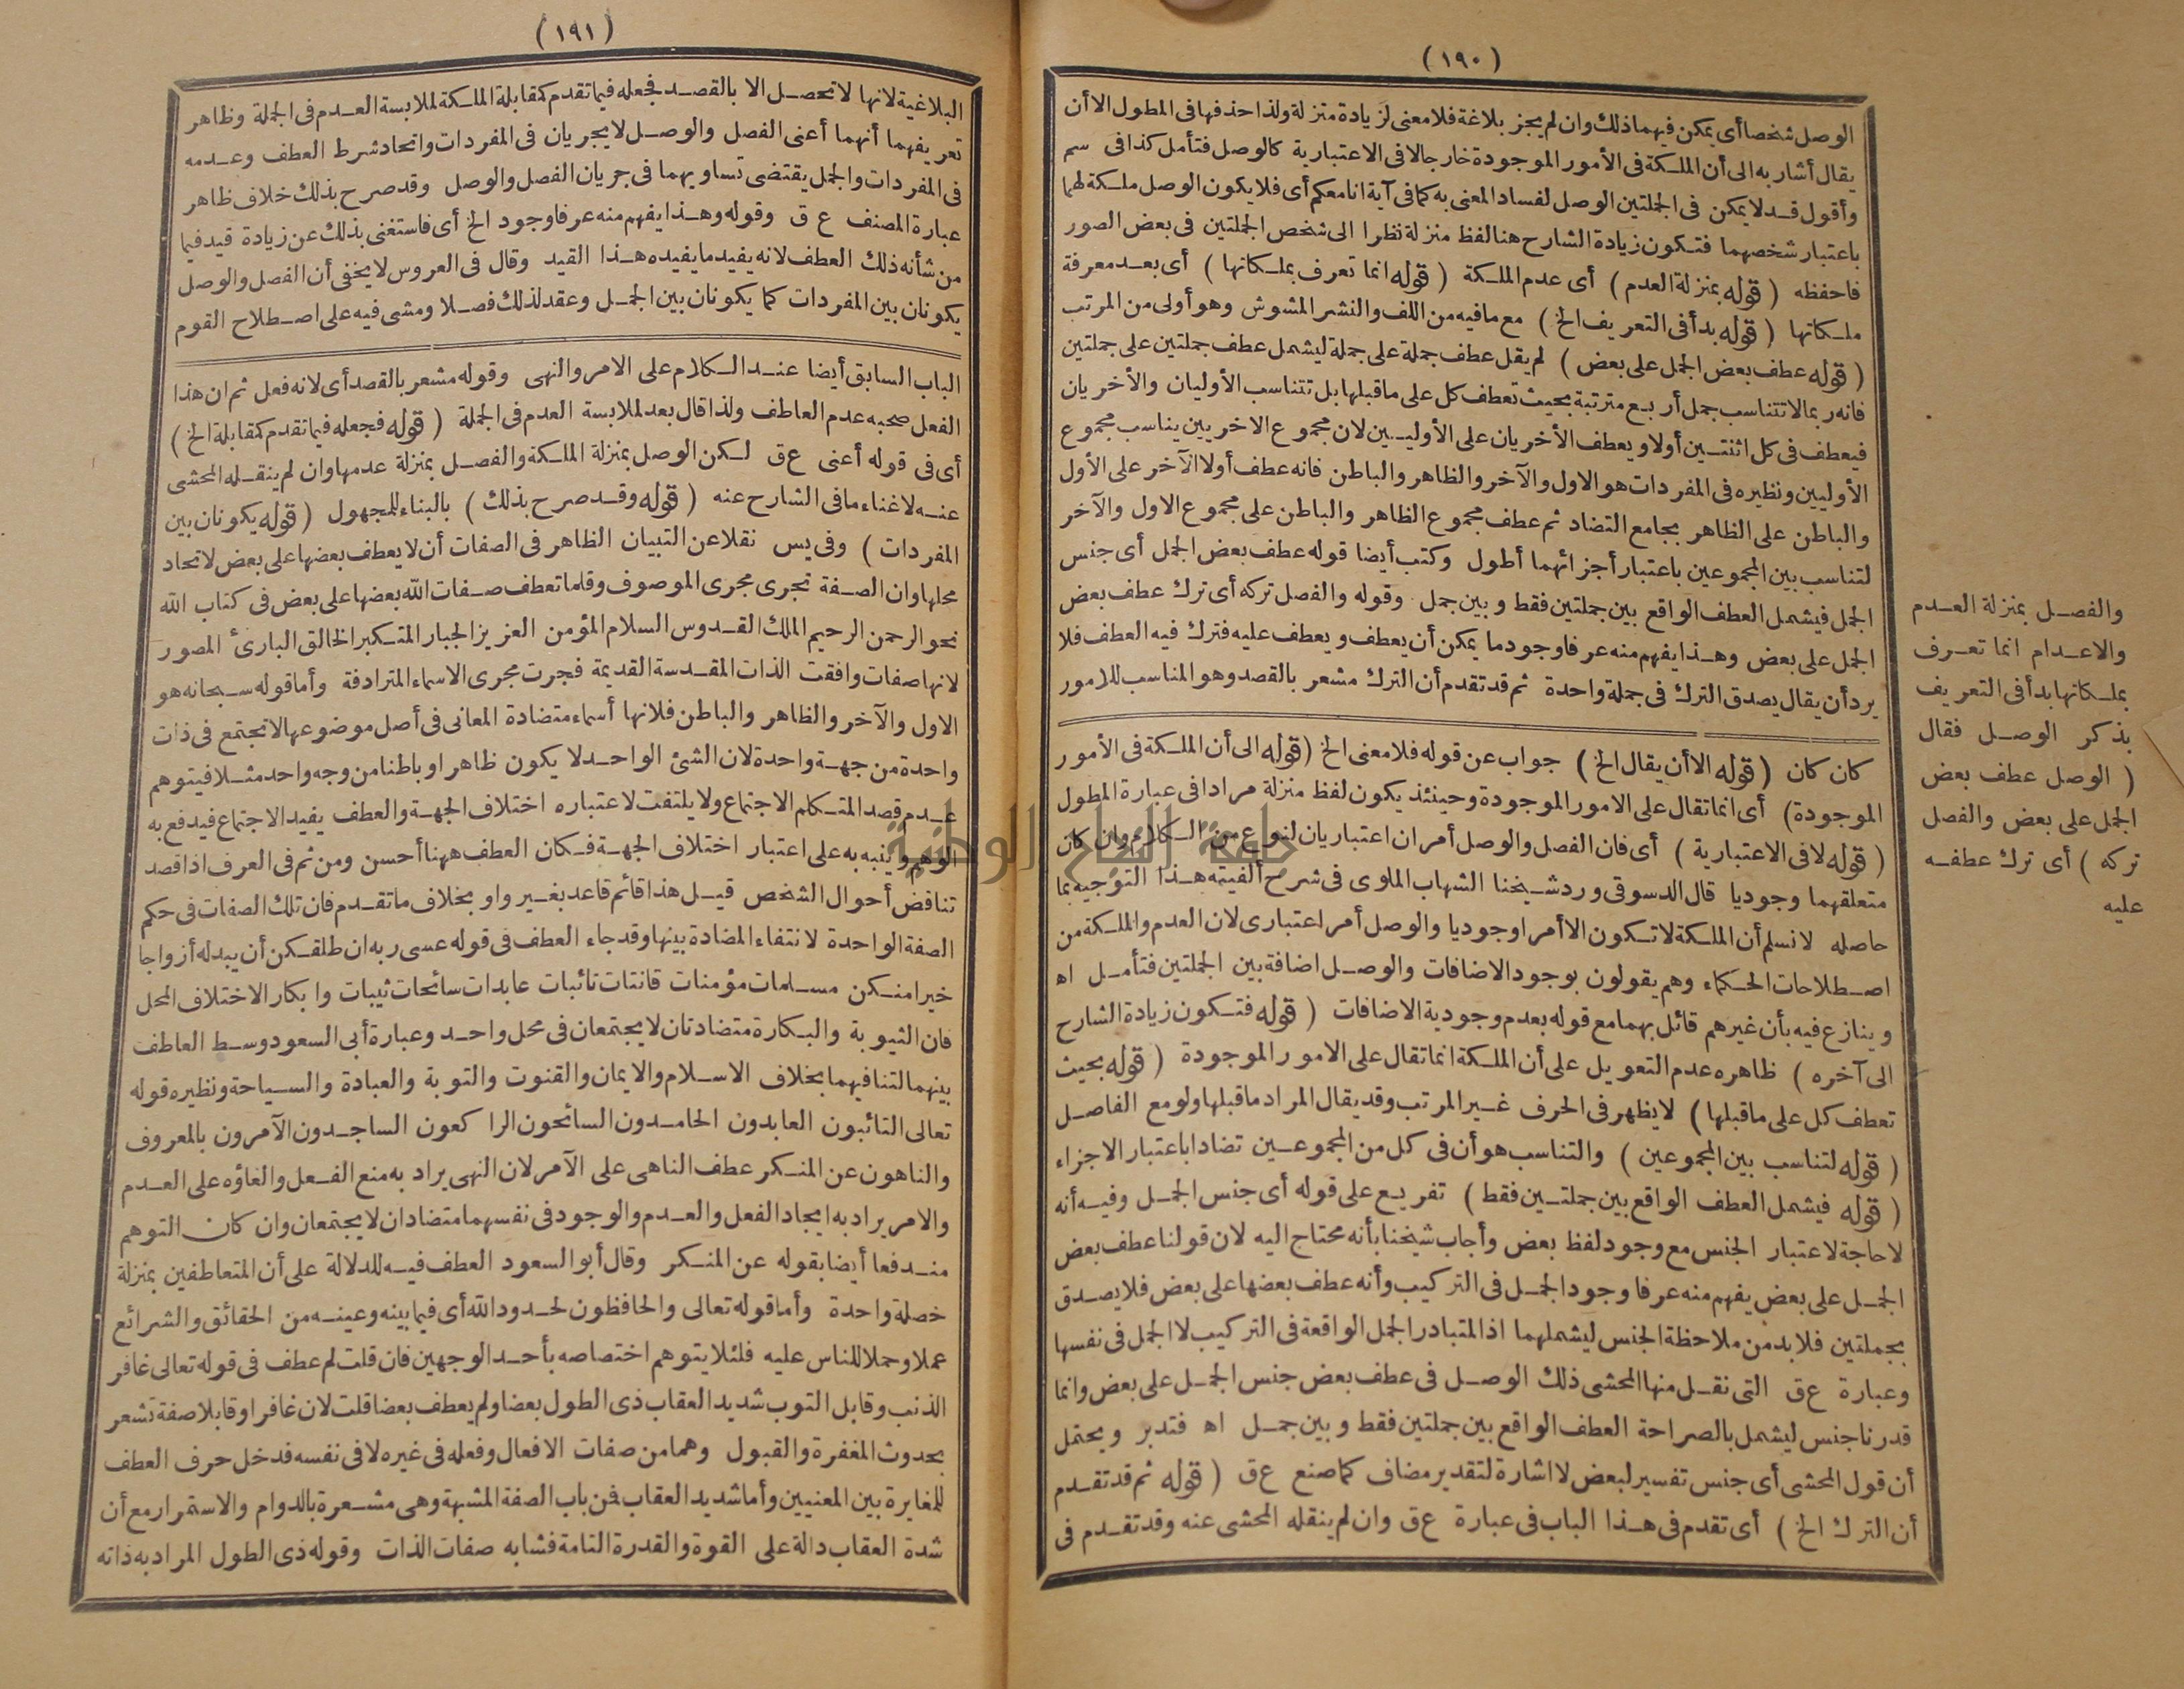 (١٩٠)
الوصل شخصا أى يمكن فيهما ذلك وان لم يجز بلاغة فلا معنى لزيادة منزلة ولذا حذفها فى المطول الا أن
يقال أشار به الى أن الملكة فى الأمور الموجودة خارجا لا فى الاعتبارية كالوصل فتأمل كذا فى سم
وأقول قد لا يمكن فى الجملتين الوصل لفساد المعنى به كما فى آية انا معكم أى فلا يكون الوصل ملكة لهما
باعتبار شخصهما فتكون زيادة الشارح هنا لفظ منزلة نظرا الى شخص الجملتين فى بعض الصور
فاحفظه (قوله بمنزلة العدم) أى عدم الملكة (قوله انما تعرف بملكاتها) أى بعد معرفة
ملكاتها (قوله بدأ فى التعريف الخ) مع ما فيه من اللف والنشر المشوش وهو أولى من المرتب
(قوله عطف بعض الجمل على بعض) لم يقل عطف جملة على جملة ليشمل عطف جملتين على جملتين
فانه ربما لا تتناسب جمل أربع مترتبة بحيث تعطف كل على ما قبلها بل تتناسب الأوليان والأخريان
فيعطف فى كل اثنتين أولا ويعطف الأخريان على الأوليين لان مجموع الاخريين يناسب مجموع
الأوليين ونظيره فى المفردات هو الاول والآخر والظاهر والباطن فانه عطف أولا الآخر على الأول
والباطن على الظاهر بجامع التضاد ثم عطف مجموع الظاهر والباطن على مجموع الاول والآخر
لتناسب بين المجموعين باعتبار أجزائهما أطول وكتب أيضا قوله عطف بعض الجمل أى جنس
الجمل فيشمل العطف الواقع بين جملتين فقط وبين جمل وقوله والفصل تركه أى ترك عطف بعض
الجمل على بعض وهذا يفهم منه عرفا وجود ما يمكن أن يعطف ويعطف عليه فترك فيه العطف فلا
يرد أن يقال يصدق الترك فى جملة واحدة ثم قد تقدم أن الترك مشعر بالقصد وهو المناسب للامور
والفصل بمنزلة العدم
والاعدام انما تعرف
بملكاتها بدأ فى التعريف
بذكر الوصل فقال
(الوصل عطف بعض
الجمل على بعض والفصل
تركه) أى ترك عطفه
عليه
كان كان (قوله الا أن يقال الخ) جواب عن قوله فلا معنى الخ (قوله الى أن الملكة فى الأمور
الموجودة) أى انما تقال على الامور الموجودة وحينئذ يكون لفظ منزلة مرادا فى عبارة المطول
(قوله لا فى الاعتبارية) أى فان الفصل والوصل أمران اعتباريان لنوع من الكلام وان كان
متعلقهما وجوديا قال الدسوقى ورد شيخنا الشهاب الملوى فى شرح ألفيته هذا التوجيه بما
حاصله لا نسلم أن الملكة لا تكون الا أمرا وجوديا والوصل أمر اعتبارى لان العدم والملكة من
اصطلاحات الحكماء وهم يقولون بوجود الاضافات والوصل اضافة بين الجملتين فتأمل اه
وينازع فيه بأن غيرهم قائل بهما مع قوله بعدم وجودية الاضافات (قوله فتكون زيادة الشارح
الى آخره) ظاهره عدم التعويل على أن الملكة انما تقال على الامور الموجودة (قوله بحيث
تعطف كل على ما قبلها) لا يظهر فى الحرف غير المرتب وقد يقال المراد ما قبلها ولو مع الفاصل
(قوله لتناسب بين المجموعين) والتناسب هو أن فى كل من المجموعين تضادا باعتبار الاجزاء
(قوله فيشمل العطف الواقع بين جملتين فقط) تفريع على قوله أى جنس الجمل وفيه أنه
لا حاجة لاعتبار الجنس مع وجود لفظ بعض وأجاب شيخنا بأنه محتاج اليه لان قولنا عطف بعض
الجمل على بعض يفهم منه عرفا وجود الجمل فى التركيب وأنه عطف بعضها على بعض فلا يصدق
بجملتين فلا بد من ملاحظة الجنس ليشملهما اذ المتبادر الجمل الواقعة فى التركيب لا الجمل فى نفسها
وعبارة ع ق التى نقل منها المحشى ذلك الوصل فى عطف بعض جنس الجمل على بعض وانما
قدرنا جنس ليشمل بالصراحة العطف الواقع بين جملتين فقط وبين جمل اه فتدبر ويحتمل
أن قول المحشى أى جنس تفسير لبعض لا اشارة لتقدير مضاف كما صنع ع ق (قوله ثم قد تقدم
أن الترك الخ) أى تقدم فى هذا الباب فى عبارة ع ق وان لم ينقله المحشى عنه وقد تقدم فى
(١٩١)
البلاغية لانها لا تحصل الا بالقصد فجعله فيما تقدم كمقابلة الملكة لملابسة العدم فى الجملة وظاهر
تعريفهما أنهما أعنى الفصل والوصل لا يجريان فى المفردات واتحاد شرط العطف وعدمه
فى المفردات والجمل يقتضى تساويهما فى جريان الفصل والوصل وقد صرح بذلك خلاف ظاهر
عبارة المصنف ع ق وقوله وهذا يفهم منه عرفا وجود الخ أى فاستغنى بذلك عن زيادة قيد فيما
من شأنه ذلك العطف لانه يفيد ما يفيده هذا القيد وقال فى العروس لا يخفى أن الفصل والوصل
يكونان بين المفردات كما يكونان بين الجمل وعقد لذلك فصلا ومشى فيه على اصطلاح القوم
الباب السابق أيضا عند الكلام على الامر والنهى وقوله مشعر بالقصد أى لانه فعل ثم ان هذا
الفعل صحبه عدم العاطف ولذا قال بعد لملابسة العدم فى الجملة (قوله فجعله فيما تقدم كمقابلة الخ)
أى فى قوله أعنى ع ق لكن الوصل بمنزلة الملكة والفصل بمنزلة عدمها وان لم ينقله المحشى
عنه لاغناء ما فى الشارح عنه (قوله وقد صرح بذلك) بالبناء للمجهول (قوله يكونان بين
المفردات) وفى يس نقلا عن التبيان الظاهر فى الصفات أن لا يعطف بعضها على بعض لاتحاد
محلها وان الصفة تجرى مجرى الموصوف وقلما تعطف صفات الله بعضها على بعض فى كتاب الله
نحو الرحمن الرحيم الملك القدوس السلام المؤمن العزيز الجبار المتكبر الخالق البارئ المصور
لانها صفات وافقت الذات المقدسة القديمة فجرت مجرى الاسماء المترادفة وأما قوله سبحانه هو
الاول والآخر والظاهر والباطن فلانها أسماء متضادة المعانى فى أصل موضوعها لا تجتمع فى ذات
واحدة من جهة واحدة لان الشئ الواحد لا يكون ظاهرا وباطنا من وجه واحد مثلا فيتوهم
عدم قصد المتكلم الاجتماع ولا يلتفت لاعتباره اختلاف الجهة والعطف يفيد الاجتماع فيدفع به
الوهم وينبه به على اعتبار اختلاف الجهة فكان العطف ههنا أحسن ومن ثم فى العرف اذا قصد
تناقض أحوال الشخص قيل هذا قائم قاعد بغير واو بخلاف ما تقدم فان تلك الصفات فى حكم
الصفة الواحدة لانتفاء المضادة بينها وقد جاء العطف فى قوله عسى ربه ان طلقكن أن يبدله أزواجا
خيرا منكن مسلمات مؤمنات قانتات تائبات عابدات سائحات ثيبات وابكارا لاختلاف المحل
فان الثيوبة والبكارة متضادتان لا يجتمعان فى محل واحد وعبارة أبى السعود وسط العاطف
بينهما لتنافيهما بخلاف الاسلام والايمان والقنوت والتوبة والعبادة والسياحة ونظيره قوله
تعالى التائبون العابدون الحامدون السائحون الراكعون الساجدون الآمرون بالمعروف
والناهون عن المنكر عطف الناهى على الآمر لان النهى يراد به منع الفعل والغاؤه على العدم
والامر يراد به ايجاد الفعل والعدم والوجود فى نفسهما متضادان لا يجتمعان وان كان التوهم
مندفعا أيضا بقوله عن المنكر وقال أبو السعود العطف فيه للدلالة على أن المتعاطفين بمنزلة
خصلة واحدة وأما قوله تعالى والحافظون لحدود الله أى فيما بينه وعينه من الحقائق والشرائع
عملا وحملا للناس عليه فلئلا يتوهم اختصاصه بأحد الوجهين فان قلت لم عطف فى قوله تعالى غافر
الذنب وقابل التوب شديد العقاب ذى الطول بعضا ولم يعطف بعضا قلت لان غافرا وقابلا صفة تشعر
بحدوث المغفرة والقبول وهما من صفات الافعال وفعله فى غيره لا فى نفسه فدخل حرف العطف
للمغايرة بين المعنيين وأما شديد العقاب فمن باب الصفة المشبهة وهى مشعرة بالدوام والاستمرار مع أن
شدة العقاب دالة على القوة والقدرة التامة فشابه صفات الذات وقوله ذى الطول المراد به ذاته
جامعة النجاح الوطنية